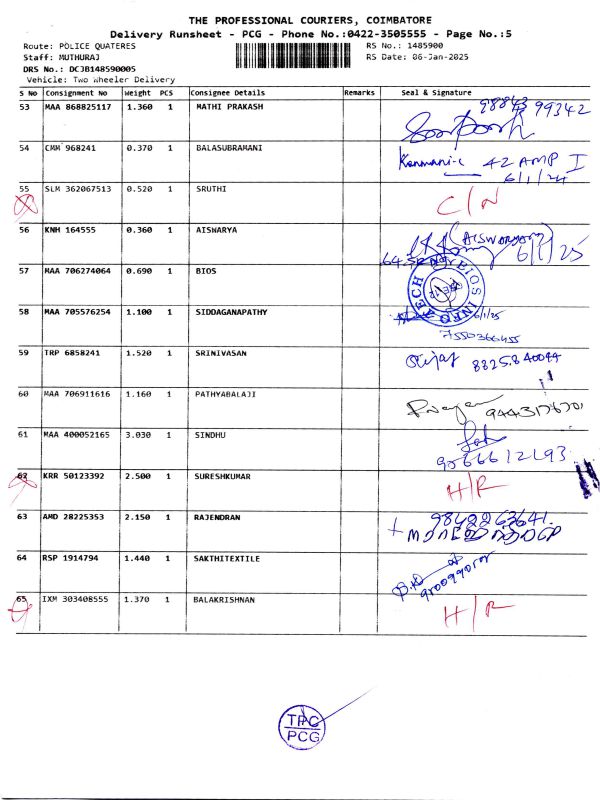 THE PROFESSIONAL COURIERS, COIMBATORE
Delivery Runsheet - PCG - Phone No.:0422-3505555 - Page No.:5
Route: POLICE QUATERES RS No.: 1485900
Staff: MUTHURAJ RS Date: 06-Jan-2025
DRS No.: DCJB148590005
Vehicle: Two Wheeler Delivery
S No Consignment No Weight PCS Consignee Details Remarks Seal & Signature
53 MAA 868825117 1.360 1 MATHI PRAKASH 98843 99342
54 CMM 968241 0.370 1 BALASUBRAMANI Kanmani-c 42 AMP I
6/1/24
55 SLM 362067513 0.520 1 SRUTHI C/N
56 KNH 164555 0.360 1 AISWARYA (AISWARYA) 6/1/25
57 MAA 706274064 0.690 1 BIOS
58 MAA 705576254 1.100 1 SIDDAGANAPATHY 6/1/25
7550366455
59 TRP 6858241 1.520 1 SRINIVASAN
60 MAA 706911616 1.160 1 PATHYABALAJI
61 MAA 400052165 3.030 1 SINDHU
62 KRR 50123392 2.500 1 SURESHKUMAR H/R
63 AMD 28225353 2.150 1 RAJENDRAN
64 RSP 1914794 1.440 1 SAKTHITEXTILE
65 IXM 303408555 1.370 1 BALAKRISHNAN H/R
TPC
PCG